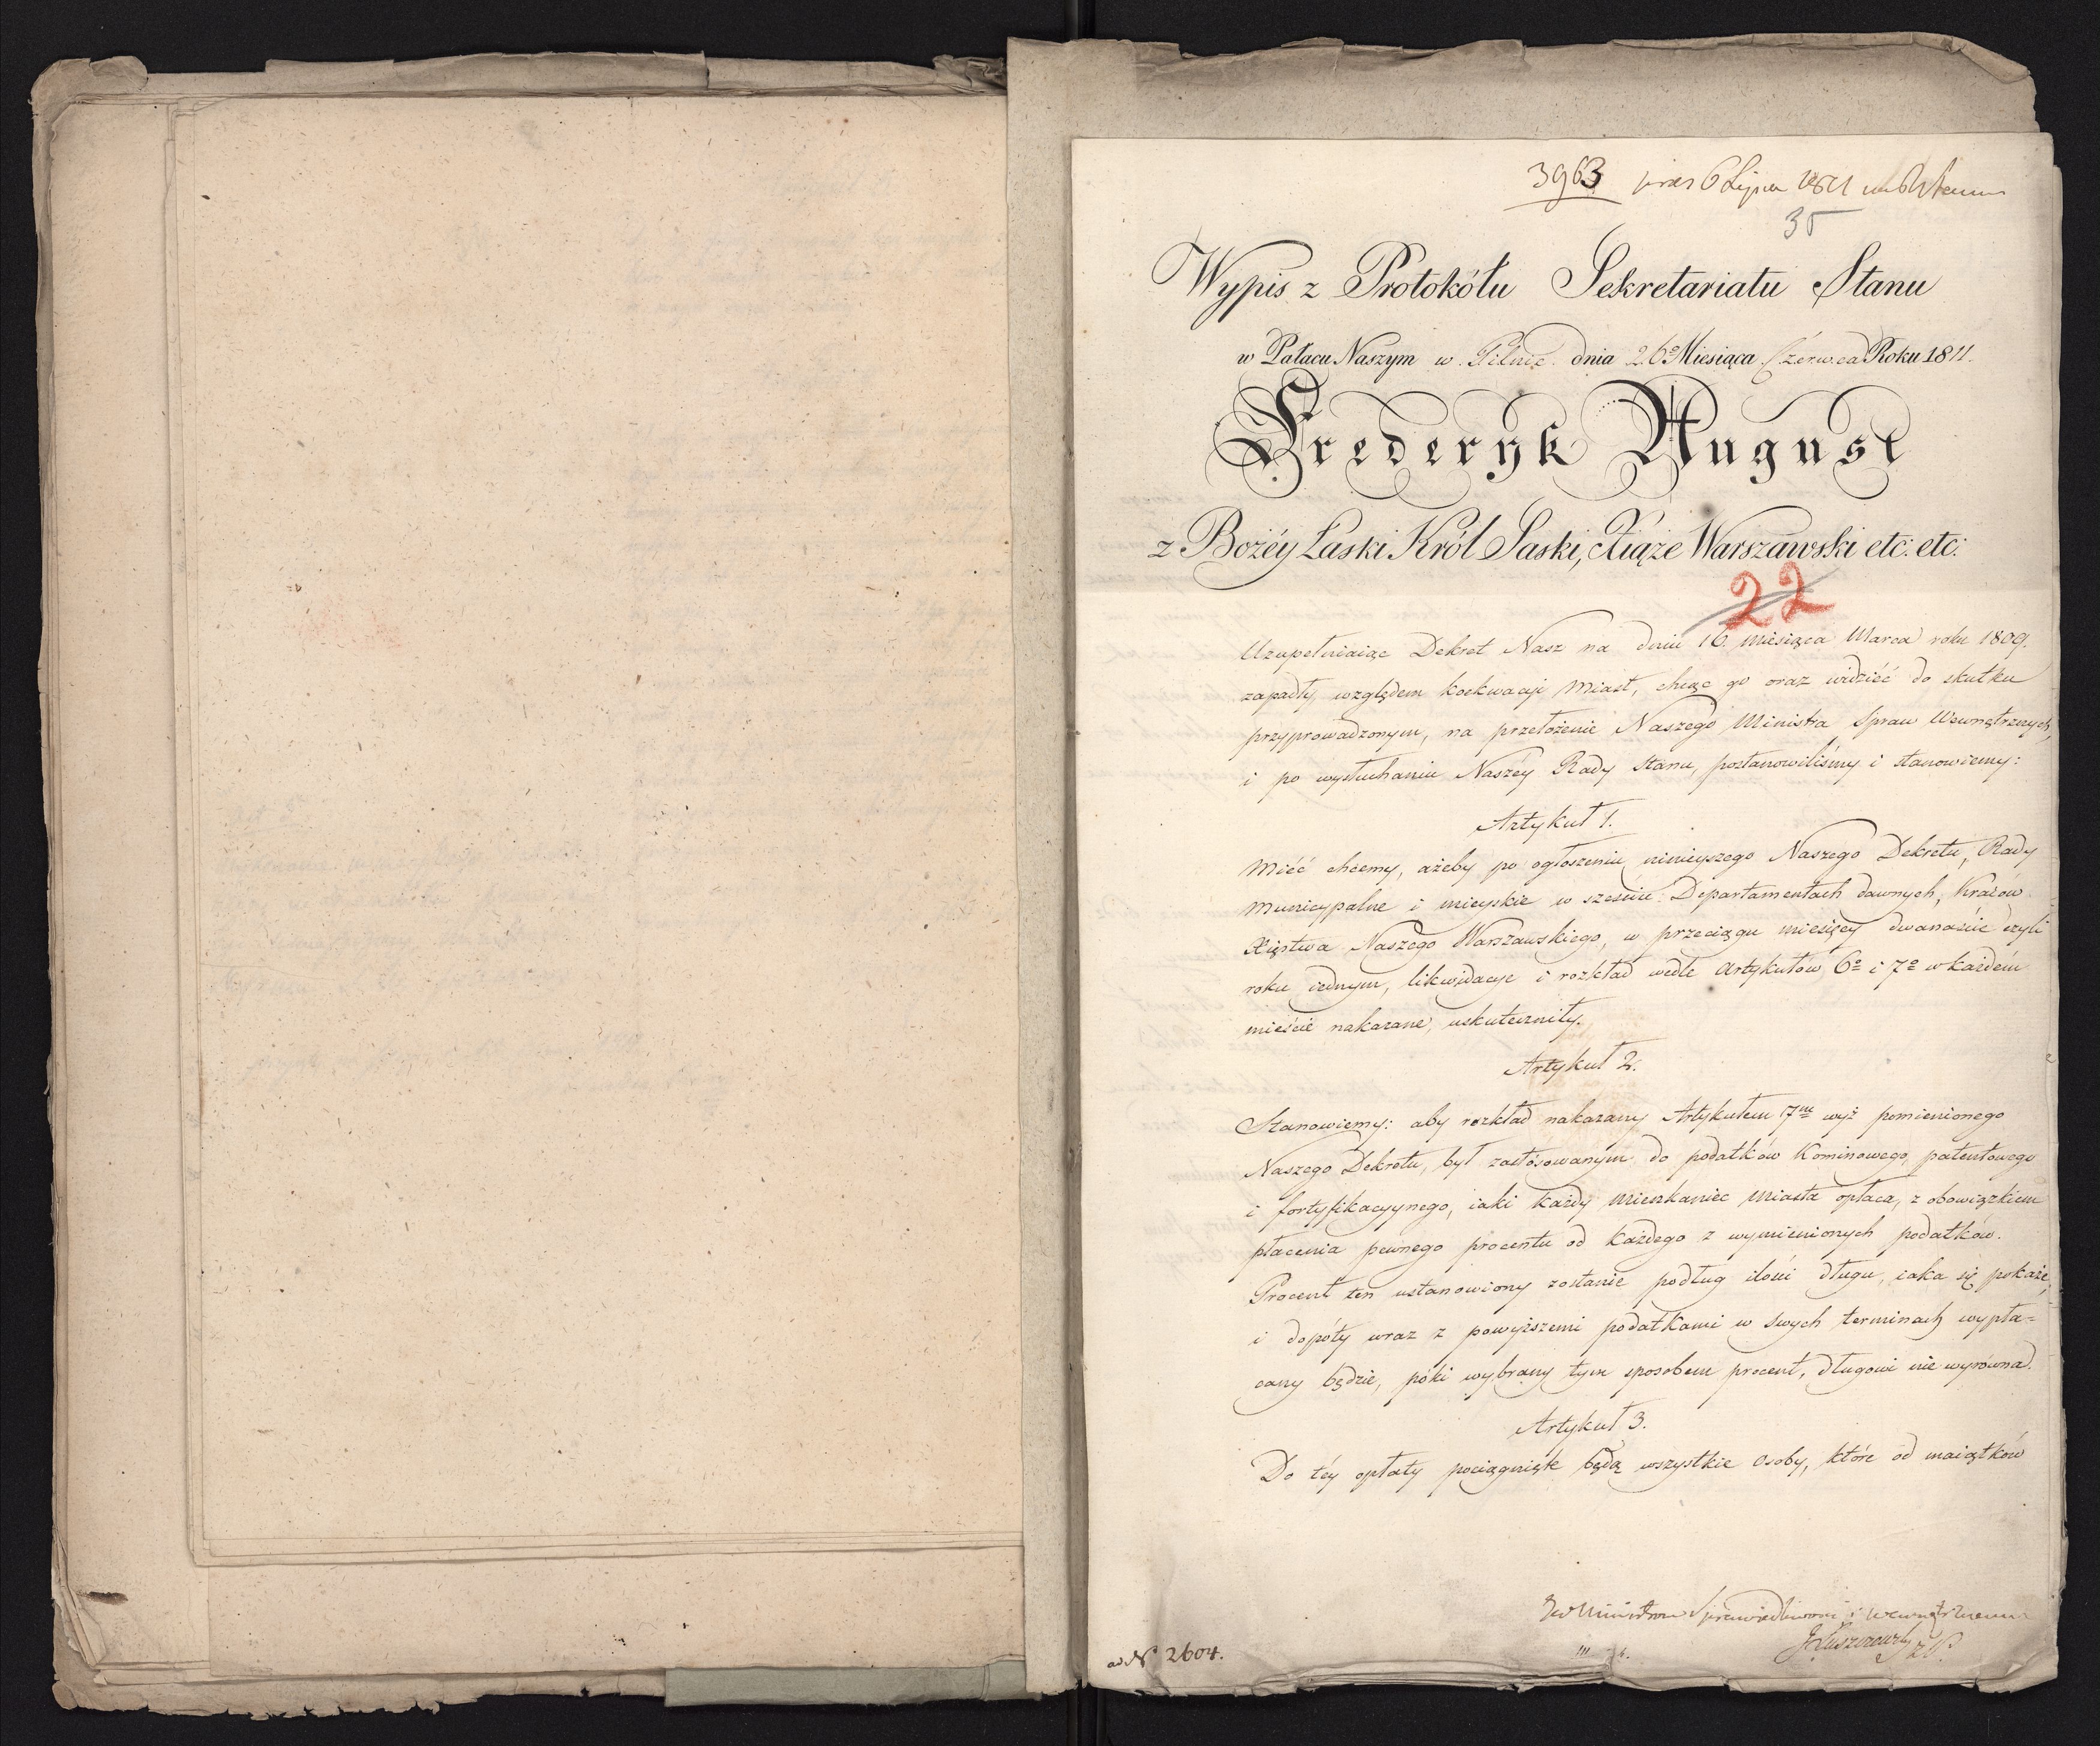 3963 6 Lipca 1811
35
Wypis z Protokółu Sekretariatu Stanu
w Pałacu Naszym w Pilnic dnia 26º Miesiąca Czerwca Roku 1811.
Frederyk August
z Bożéy Łaski Król Saski, Xiąże Warszawski etc: etc:
22
Uzupełniaiąc Dekret Nasz na dniu 16. miesiąca Marca roku 1809.
zapadły względem koekwacyi Miast, chcąc go oraz widzieć do skutku
przyprowadzonym, na przełożenie Naszego Ministra Spraw Wewnętrznych,
i po wysłuchaniu Naszéy Rady Stanu, postanowiliśmy i stanowiemy:
Artykuł 1.
Mieć chcemy, ażeby po ogłoszeniu ninieyszego Naszego Dekretu, Rady
Municypalne i mieyskie w sześciu Departamentach dawnych, Kraiów
Xięstwa Naszego Warszawskiego, w przeciągu miesięcy dwanaście czyli
roku iednym, likwidacye i rozkład wedle Artykułów 6º i 7º w każdém
mieście nakazane, uskuteczniły.
Artykuł 2.
Stanowiemy: aby rozkład nakazany Artykułem 7m wyż pomienionego
Naszego Dekretu, był zastosowanym do podatków Kominowego, patentowego
i fortyfikacyynego, iaki każdy mieszkaniec miasta opłaca, z obowiązkiem
płacenia pewnego procentu od każdego z wymienionych podatków.
Procent ten ustanowiony zostanie podług ilości długu, iaka się pokaże,
i dopóty wraz z powyższemi podatkami w swych terminach wypła=
cany będzie, póki wybrany tym sposobem procent, długowi nie wyrówna.
Artykuł 3.
Do téy opłaty pociągnięte będą wszystkie osoby, które od maiątków
JW Ministrom Sprawiedliwości i wewnętrznemu
ad N 2604.